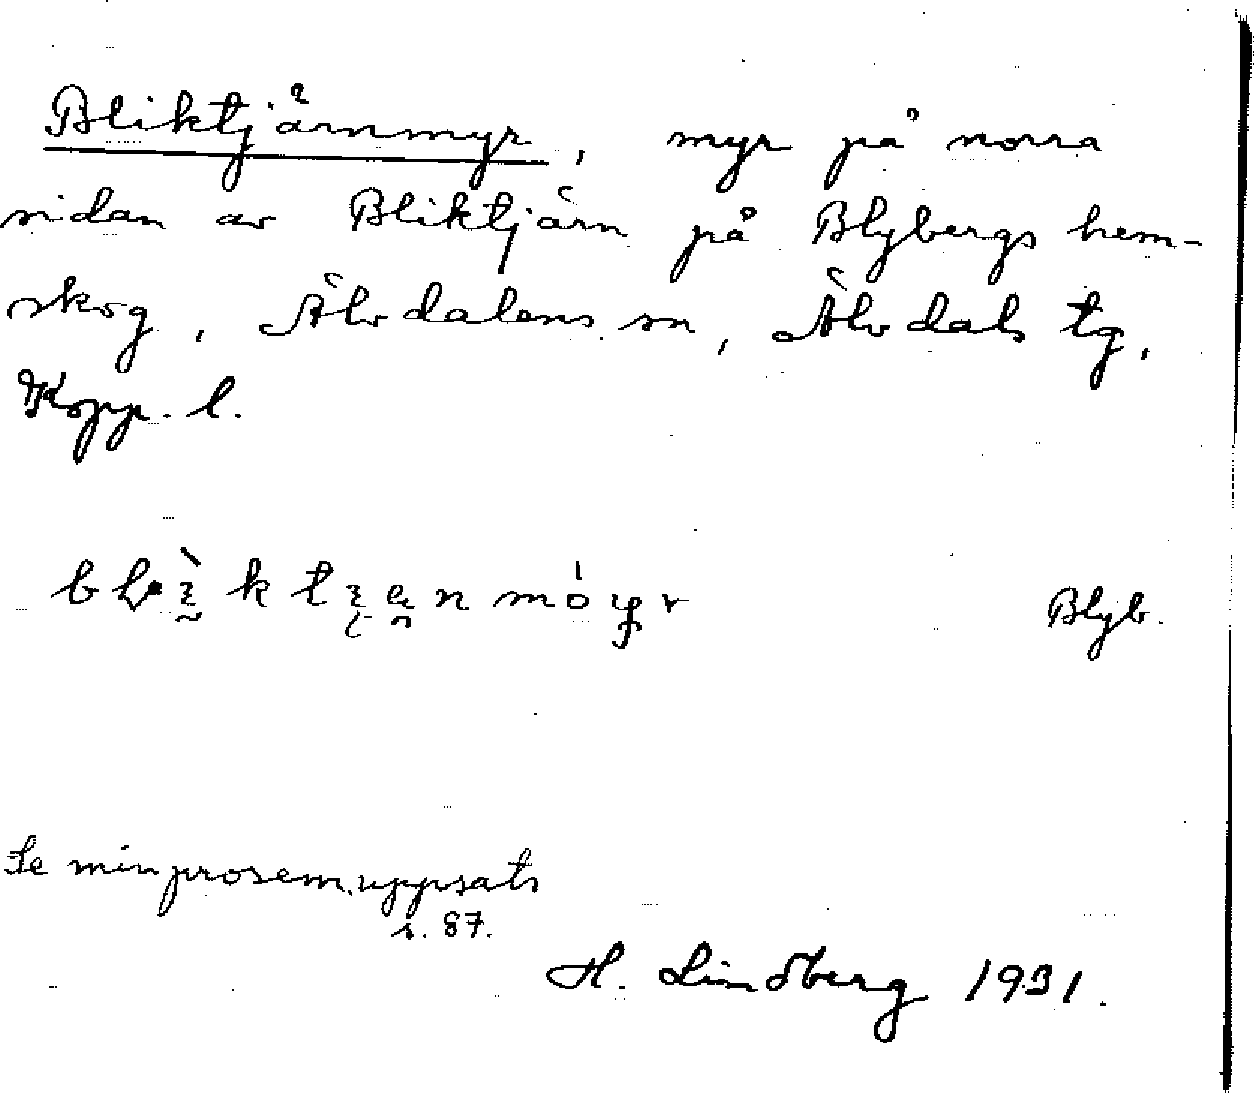 Bliktjärnmyr, myr på norra
sidan av Bliktjärn på Blybergs hem-
skog, Älvdalens sn, Älvdals tg,
Kopp. l.
Blyb.
Se min prosem.uppsats
s. 87.
H. Lindberg 1931.